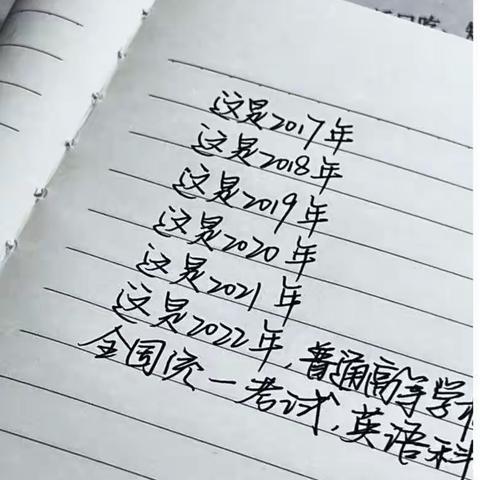 这是2017年
这是2018年
这是2019年
这是2020年
这是2021年
这是2022年,普通高等学校
全国统一考试,英语科